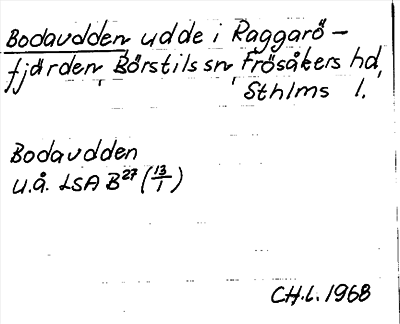 Bodaudden udde i Raggarö-
fjärden Börstils sn Frösåkers hd,
Sthlms l.
Bodaudden
u.å. LSA B27 (13/1)
CH.L. 1968